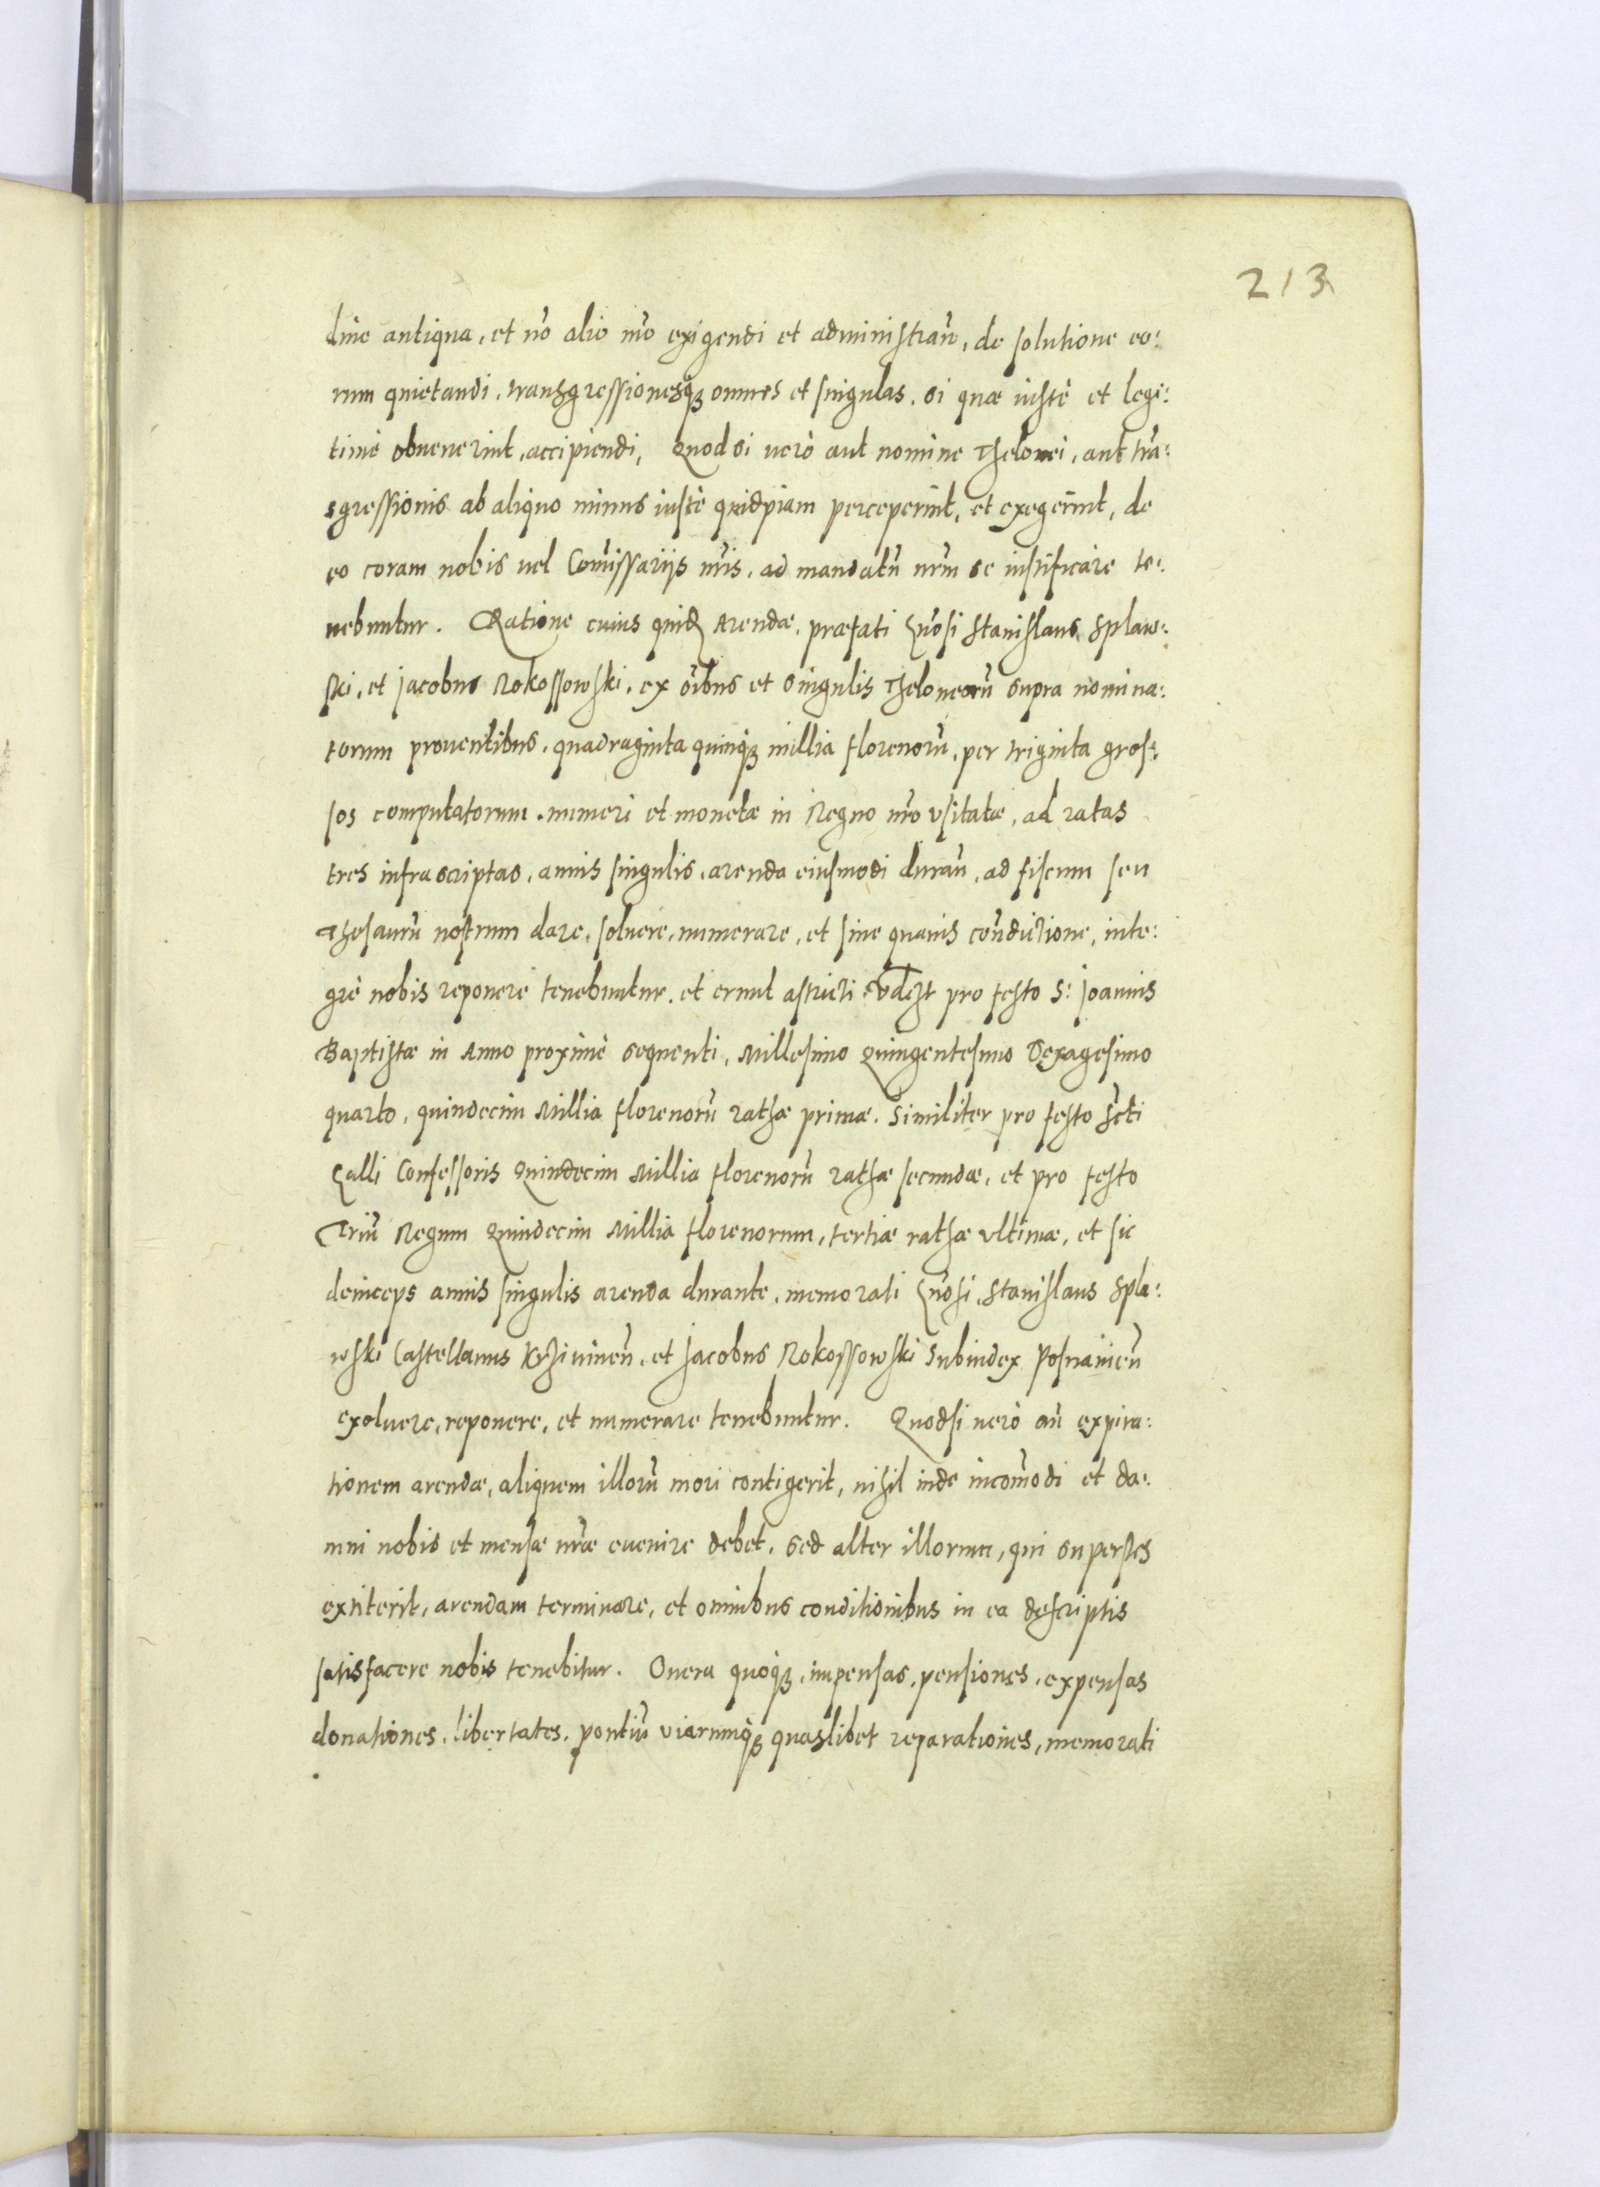 213
dine antiqua, et nō alio mō exigendi et administran̄, de solutione eo:
rum quietandi, transgressionesq3 omnes et singulas, si quæ iustè et legi:
timè obuenerint, accipiendi, Quod si uerò aut nomine Thelonei, aut trā:
sgressionis ab aliquo minus iustè quidpiam perceperint, et exegerint, de
eo coram nobis uel Com̄issariijs nr̄is, ad mandatū nr̄m se iustificare te:
nebuntur. Ratione cuius quid3 Arendæ, præfati Gn̄osi Stanislaus Splaw:
ski, et Jacobus Rokossowski, ex oībus et singulis Theloneorū supra nomina:
torum prouentibus, quadraginta quinq3 millia florenorū, per triginta gros:
sos computatorum, numeri et monetæ in Regno nr̄o vsitatæ, ad ratas
tres infrascriptas, annis singulis, arenda eiusmodi duran̄, ad fiscum seu
Thesaurū nostrum dare, soluere, numerare, et sine quauis con̄dictione, inte:
grè nobis reponere tenebuntur, et erunt astricti. vdelzt pro festo S: Joannis
Baptistæ in Anno proximè sequenti, Millesimo Quingentesimo Sexagesimo
quarto, quindecim Millia florenorū rathæ primæ. Similiter pro festo Sc̄ti
Galli Confessoris Quindecim Millia florenorū rathæ secundæ, et pro festo
Triū Regum Quindecim Millia florenorum, tertiæ rathæ vltimæ, et sic
deinceps annis singulis arenda durante, memorati Gn̄osi, Stanislaus Spla:
wski Castellanus Krziuinen̄, et Jacobus Rokossowski Subiudex Posnanien̄
exoluere, reponere, et numerare tenebuntur. Quodsi uerò an̄ expira:
tionem arendæ, aliquem illorū mori contigerit, nihil inde incom̄odi et da:
mni nobis et mensæ nr̄æ euenire debet, sed alter illorum, qui superstes
extiterit, arendam terminare, et omnibus conditionibus in ea descriptis
satisfacere nobis tenebitur. Onera quoq3, impensas, pensiones, expensas
donationes, libertates, pontiū viarumq3 quaslibet reparationes, memorati